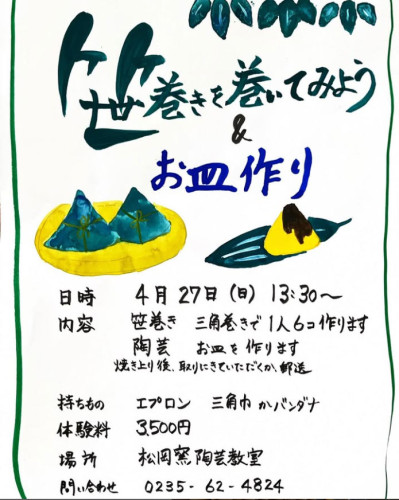 笹巻きを巻いてみよう
&
お皿作り
日時 4月27日(日) 13:30〜
内容 笹巻き 三角巻きで1人6コ作ります
陶芸 お皿を作ります
焼き上り後、取りにきていただくか、郵送
持ちもの エプロン 三角巾かバンダナ
体験料 3,500円
場所 松岡窯陶芸教室
問い合わせ 0235-62-4824